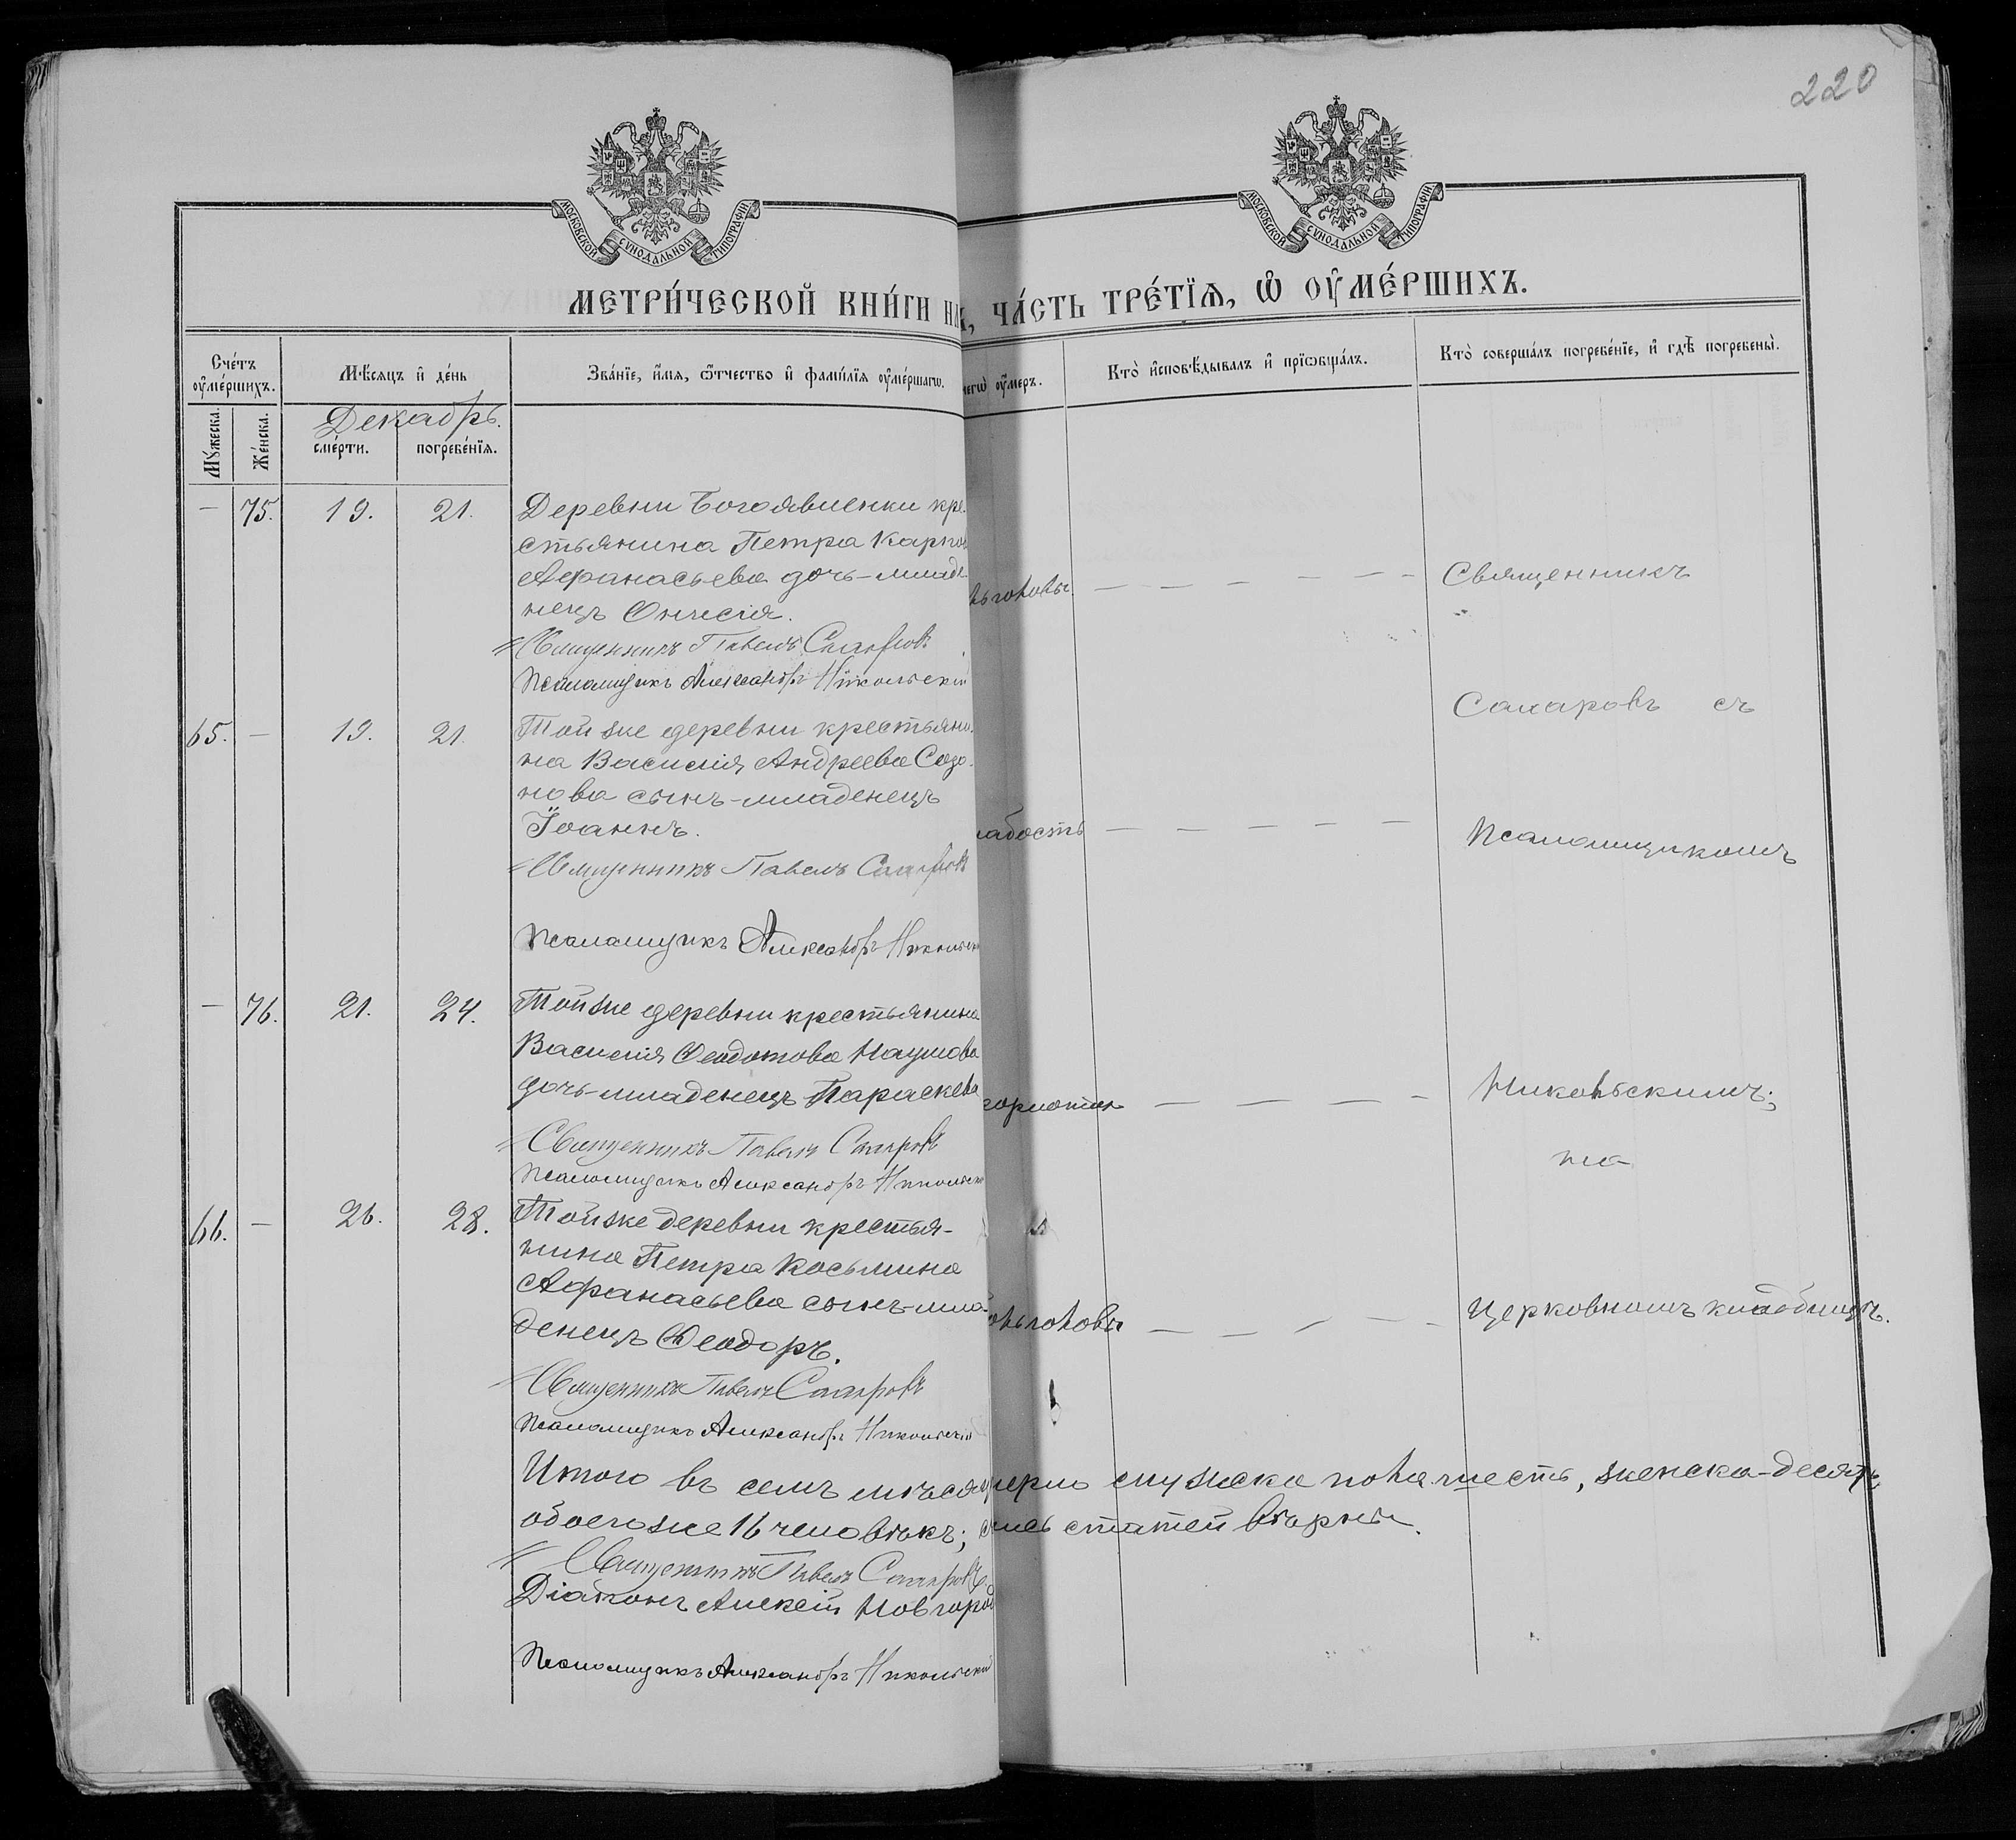 220
МОСКОВСКОЙ СѴНОДАЛЬНОЙ ТИПОГРАФІИ
МОСКОВСКОЙ СѴНОДАЛЬНОЙ ТИПОГРАФІИ
МЕТРИ́ЧЕСКОЙ КНИ́ГИ НА
, ЧА́СТЬ ТРЕ́ТЇѦ, Ѡ҆ ОУ҆МЕ́РШИХЪ.
Сче́тъ оу҆ме́ршихъ.
Мѣ́сѧцъ и҆ де́нь
Зва́нїе, и҆́мѧ, ѻ҆́тчество и҆ фами́лїѧ оу҆ме́ршагѡ.
чегѡ̀ оу҆́меръ.
Кто̀ и҆сповѣ́дывалъ и҆ прїѡбща́лъ.
Кто̀ соверша́лъ погребе́нїе, и҆ гдѣ̀ погребены̀.
Му́жеска.
Же́нска.
Декабрь.
сме́рти.
погребе́нїѧ.
— 75. 19. 21. Деревни Богоявленки кре-
стьянина Петра Карпов
Афанасьева дочь-младе-
нецъ Онисія.
Священникъ Павелъ Сахаровъ
Псаломщикъ Александръ Никольскій
ь головы — — — — — —
Священникъ
65. — 19. 21. Той же деревни крестьяни-
на Василія Андреева Созо-
нова сынъ-младенецъ
Іоаннъ.
Священникъ Павелъ Сахаровъ
Псаломщикъ Александръ Никольск
лабость — — — — — —
Сахаровъ съ
Псаломщикомъ
— 76. 21. 24. Той же деревни крестьянина
Василія Ѳеодотова Наумова
дочь-младенецъ Параскева
Священникъ Павелъ Сахаровъ
Псаломщикъ Александръ Никольск
— — — — —
Никольскимъ;
на
66. — 26. 28. Той же деревни крестья-
нина Петра Косьмина
Афанасьева сынъ-мла-
денецъ Ѳеодоръ.
Священникъ Павелъ Сахаровъ
Псаломщикъ Александръ Никольскій
оль головы — — — — —
церковномъ кладбищѣ.
Итого въ семъ мѣсяц мерло мужска пола-шесть, женска-десять,
обоего же 16 человѣкъ; статей вѣрны.
Священникъ Павелъ Сахаровъ
Діаконъ Алексій Новгород
Псаломщикъ Александръ Никольскій